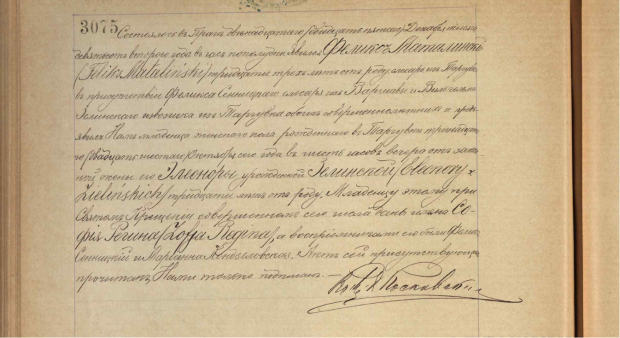 3075
Состоялось въ Прагѣ двѣнадцатаго (двадцать пятаго) Декабря тысяча
девятьсотъ второго года въ часъ пополудни явился Феликсъ Маталинскій
(Feliks Mataliński) тридцати трехъ лѣтъ отъ роду, слесарь изъ Таргувка
въ присутствіи Феликса Сенницкаго слесаря изъ Варшавы и
Зелинскаго изъ Таргувка обоихъ совершеннолѣтнихъ и предъ
явилъ Намъ младенца женскаго пола рожденнаго въ Таргувкѣ
сего года въ шесть часовъ вечера отъ закон
ной жены его Элеоноры урожденной Зелинской (Eleonory z
Zielińskich) тридцати лѣтъ отъ роду. Младенцу этому при
Святомъ Крещеніи совершенномъ сего числа дано имя Со
фія Регина (Zofia Regina), а воспріемниками его были Феликсъ
Сенницкій и Маріанна. Актъ сей присутствующимъ
прочитанъ, Нами только подписанъ. —